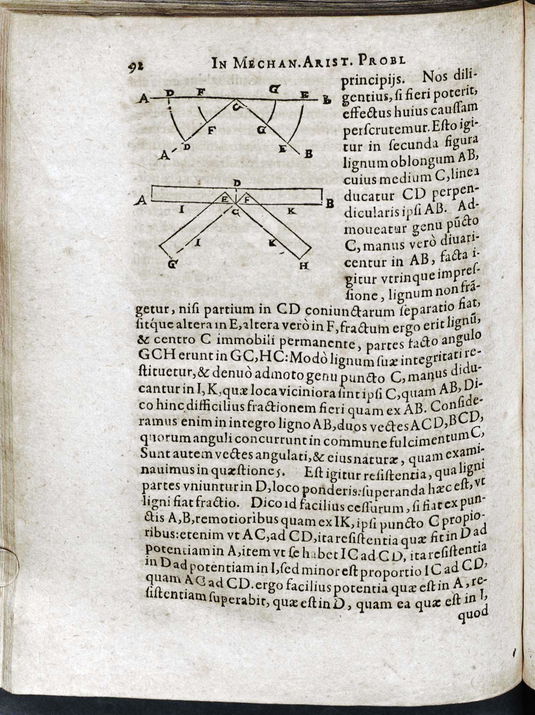 92
IN MECHAN. ARIST. PROBL
A D F G G E B
F G
D E
A B
D
A E F B
I C K
I K
G H
principijs. Nos dili-
gentius, si fieri poterit,
effectus huius caussam
perscrutemur. Esto igi-
tur in secunda figura
lignum oblongum AB,
cuius medium C, linea
ducatur CD perpen-
dicularis ipsi AB. Ad-
moueatur genu pūcto
C, manus verò diuari-
centur in AB, facta i-
gitur vtrinque impres-
sione, lignum non frā-
getur, nisi partium in CD coniunctarum separatio fiat,
sitq́ue altera in E, altera verò in F, fractum ergo erit lignū,
& centro C immobili permanente, partes facto angulo
GCH erunt in GC, HC: Modò lignum suæ integritati re-
stituetur, & denuò admoto genu puncto C, manus didu-
cantur in I, K, quæ loca viciniora sint ipsi C, quam AB, Di-
co hinc difficilius fractionem fieri quam ex AB. Conside-
ramus enim in integro ligno AB, duos vectes ACD, BCD,
quorum anguli concurrunt in commune fulcimentum C,
Sunt autem vectes angulati, & eius naturæ, quam exami-
nauimus in quæstione 5. Est igitur resistentia, qua ligni
partes vniuntur in D, loco ponderis: superanda hæc est, vt
ligni fiat fractio. Dico id facilius cessurum, si fiat ex pun-
ctis A, B, remotioribus quam ex IK, ipsi puncto C propio-
ribus: etenim vt AC, ad CD, ita resistentia quæ fit in D ad
potentiam in A, item vt se habet IC ad CD, ita resistentia
in D ad potentiam in I, sed minor est proportio IC ad CD,
quam AC ad CD. ergo facilius potentia quæ est in A, re-
sistentiam superabit, quæ est in D, quam ea quæ est in I,
quod